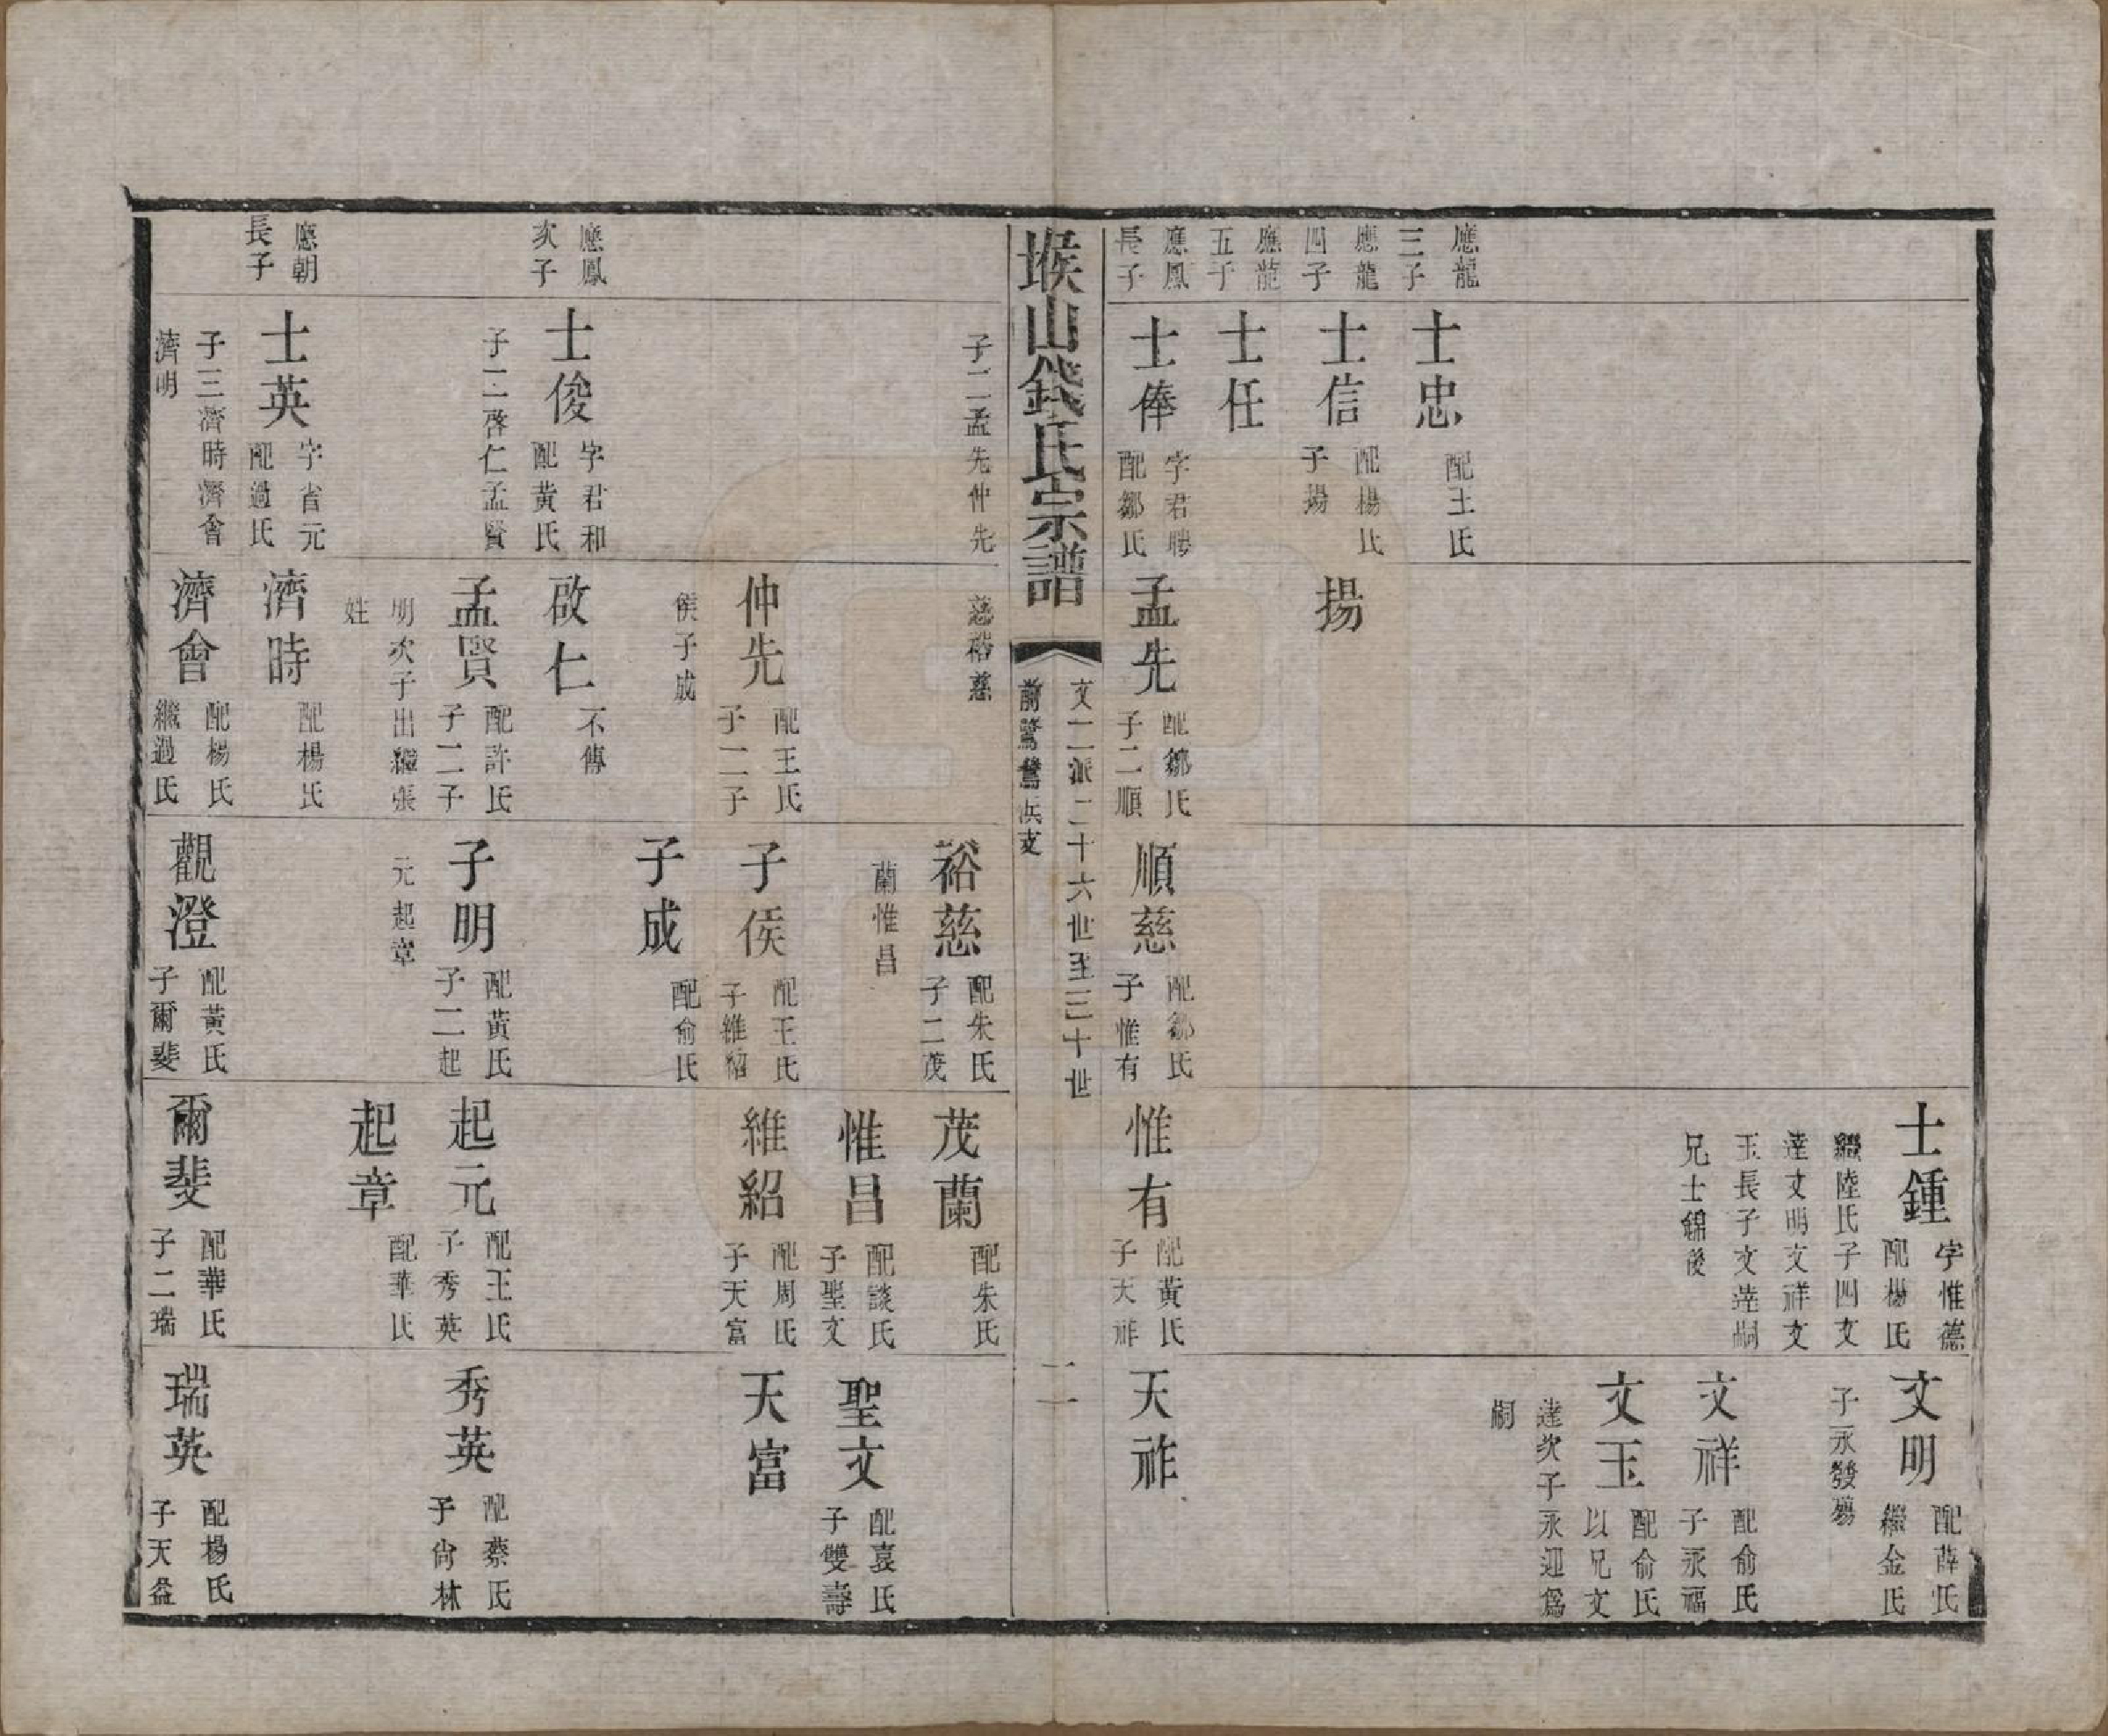 應龍
三子
應龍
四子
應龍
五子
應鳳
長子
士忠
配王氏
士信
配楊氏
子揚
士任
士俸
字君聘
配鄒氏
揚
孟先
配鄒氏
子二順
順慈
配鄒氏
子惟有
士鍾
字惟德
配楊氏
繼陸氏子四文
達文明文祥文
玉長子文達嗣
兄士錦後
惟有
配黃氏
子天祚
文明
配薛氏
繼金氏
子永發殤
文祥
配俞氏
子永福
文玉
配俞氏
以兄文
達次子永迎爲
嗣
天祚
堠山錢氏宗譜
文二派二十六世至三十世
前鴛鴦浜支
二
應鳳
次子
應朝
長子
子二孟先仲先
士俊
字君和
配黃氏
子二啓仁孟賢
士英
字省元
配過氏
子三濟時濟會
濟明
慈裕慈
仲先
配王氏
子二子
侯子成
啟仁
不傳
孟賢
配許氏
子二子
明次子出繼張
姓
濟時
配楊氏
濟會
配楊氏
繼過氏
裕慈
配朱氏
子二茂
蘭惟昌
子侯
配王氏
子維紹
子成
配俞氏
子明
配黃氏
子二起
元起章
觀澄
配黃氏
子爾斐
茂蘭
配朱氏
惟昌
配談氏
子聖文
維紹
配周氏
子天富
起元
配王氏
子秀英
起章
配華氏
爾斐
配華氏
子二瑞
聖文
配袁氏
子雙壽
天富
秀英
配蔡氏
子尙林
瑞英
配楊氏
子天益